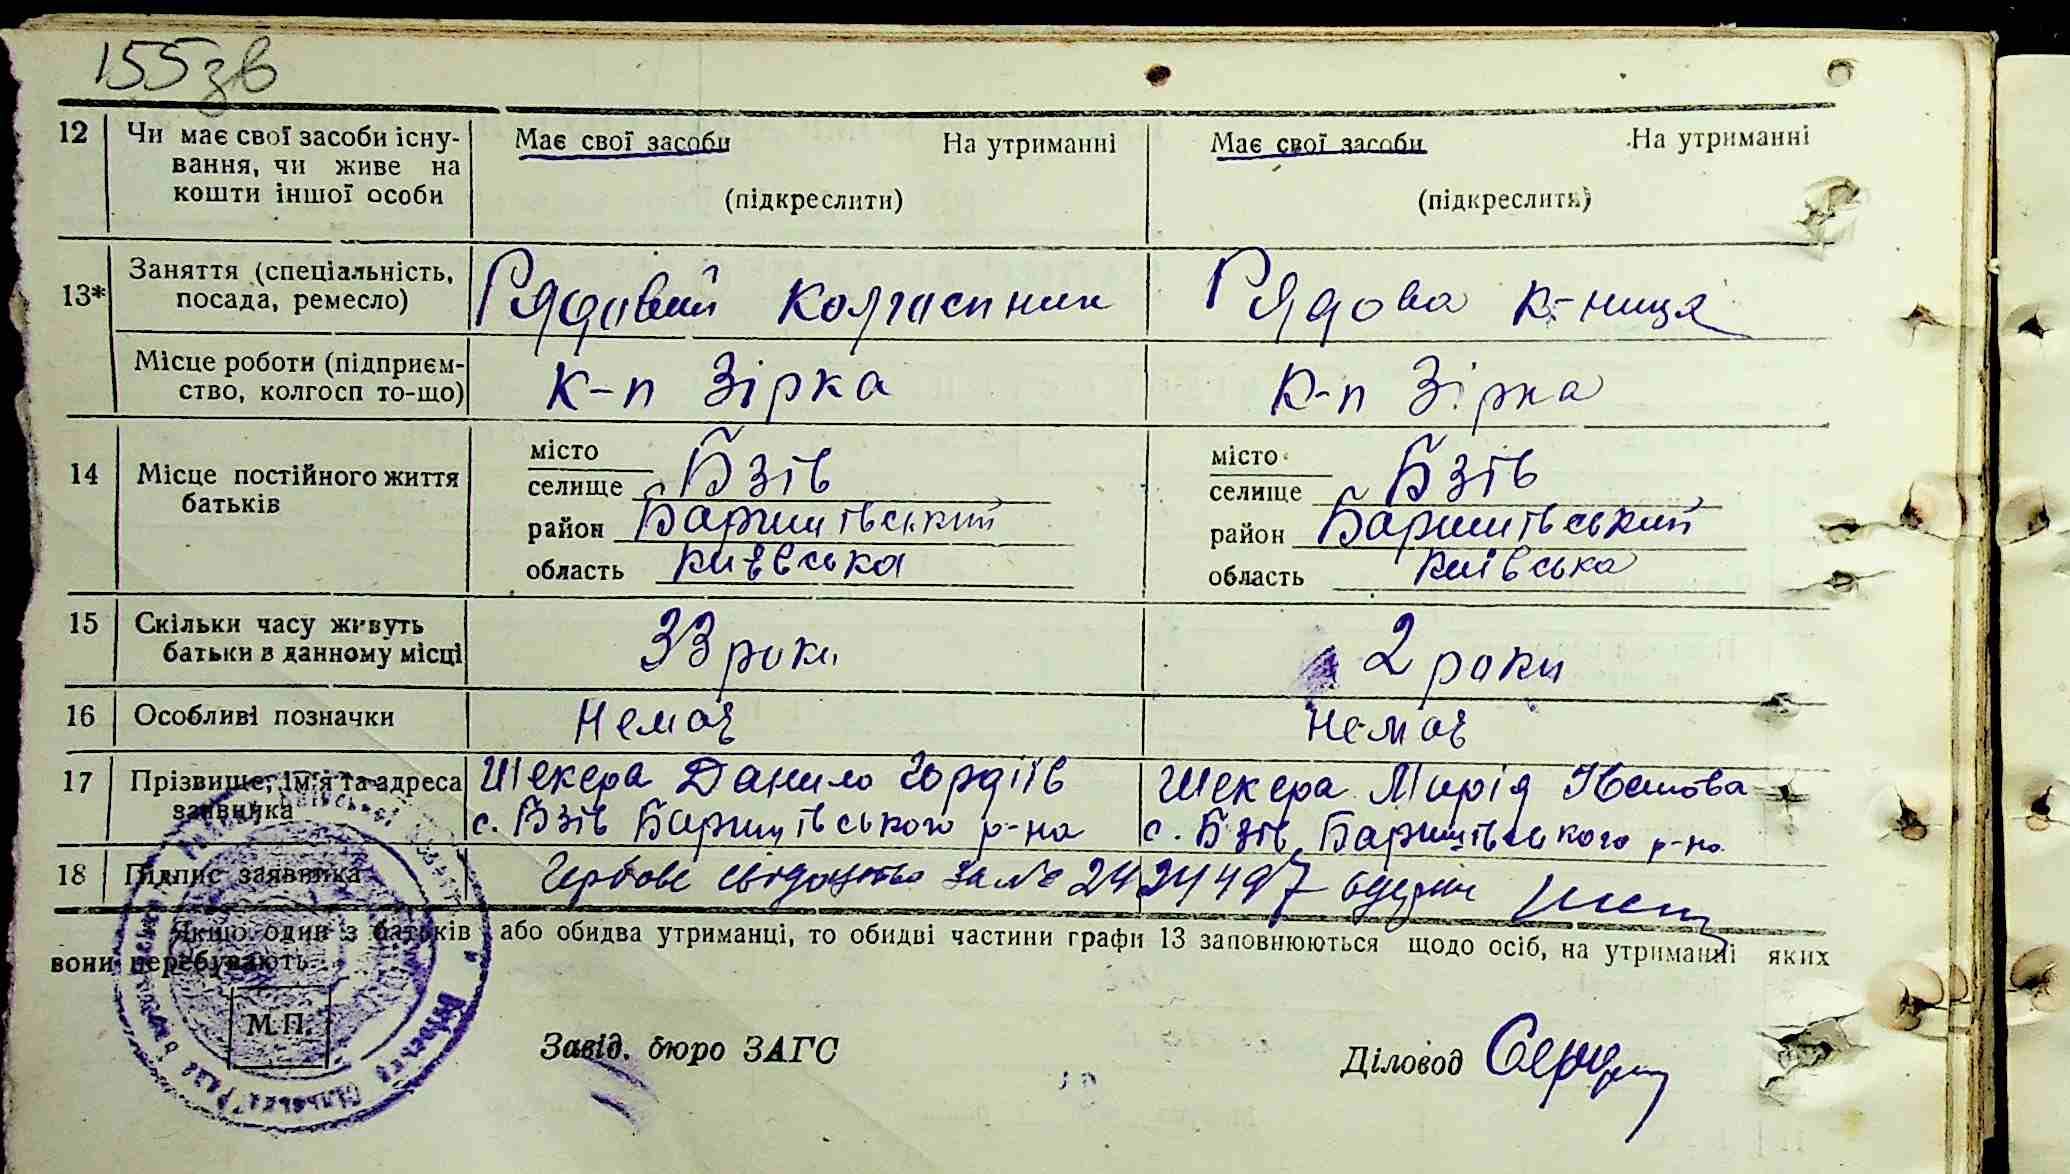 155зв
12 Чи має свої засоби існу- Має свої засоби На утриманні Має свої засоби На утриманні
вання, чи живе на
кошти іншої особи (підкреслити) (підкреслити)
13* Заняття (спеціальність, Рядовий колгоспник Рядова к-ниця
посада, ремесло)
Місце роботи (підприєм- К-п Зірка К-п Зірка
ство, колгосп то-що)
14 Місце постійного життя місто Бзів місто Бзів
батьків селище селище
район Баришівський район Баришівський
область Київська область Київська
15 Скільки часу живуть 33 роки 2 роки
батьки в данному місці
16 Особливі позначки Немає Немає
17 Прізвище, ім'я та адреса Шекера Данило Гордіїв Шекера Марія Іванова
заявника с. Бзів Баришівського р-на с. Бзів Баришівського р-на
18 Підпис заявника Гербове свідоцтво за № 2424497 одержив
Якщо один з батьків або обидва утриманці, то обидві частини графи 13 заповнюються щодо осіб, на утриманні яких
вони перебувають.
М.П.
Завід. бюро ЗАГС Діловод